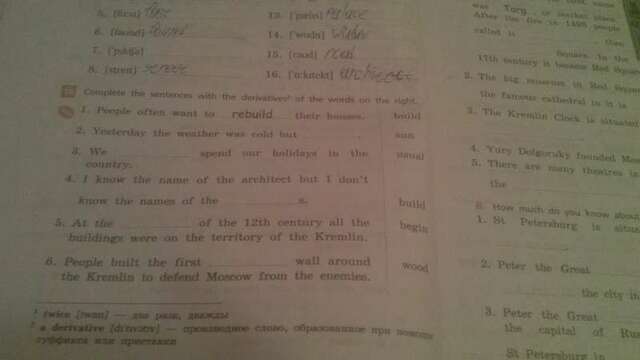 5. [fɜːst] first
6. [faʊnd]
7.
8. [striːt]
13.
14. ['wʊdn]
15.
16. ['ɑːkɪtekt] architect
Complete the sentences with the derivatives² of the words on the right.
1. People often want to rebuild their houses. build
2. Yesterday the weather was cold but ________. sun
3. We ________ spend our holidays in the usual
country.
4. I know the name of the architect but I don't
know the names of the ________s. build
5. At the ________ of the 12th century all the begin
buildings were on the territory of the Kremlin.
6. People built the first ________ wall around wood
the Kremlin to defend Moscow from the enemies.
¹ twice [twaɪs] — два раза, дважды
² a derivative [dɪ'rɪvətɪv] — производное слово, образованное при помощи
суффикса или приставки
was Torg or market place.
After the fire in 1493 people
called is ________ then
Square. In the
17th century it became Red Square
2. The big museum in Red Squar
the famous cathedral in it is
3. The Kremlin Clock is situated
4. Yury Dolgoruky founded Mos
5. There are many theatres in
the ________
How much do you know about
1. St. Petersburg is situa
2. Peter the Great
the city in
3. Peter the Great ________
the capital of Rus
St. Petersburg in